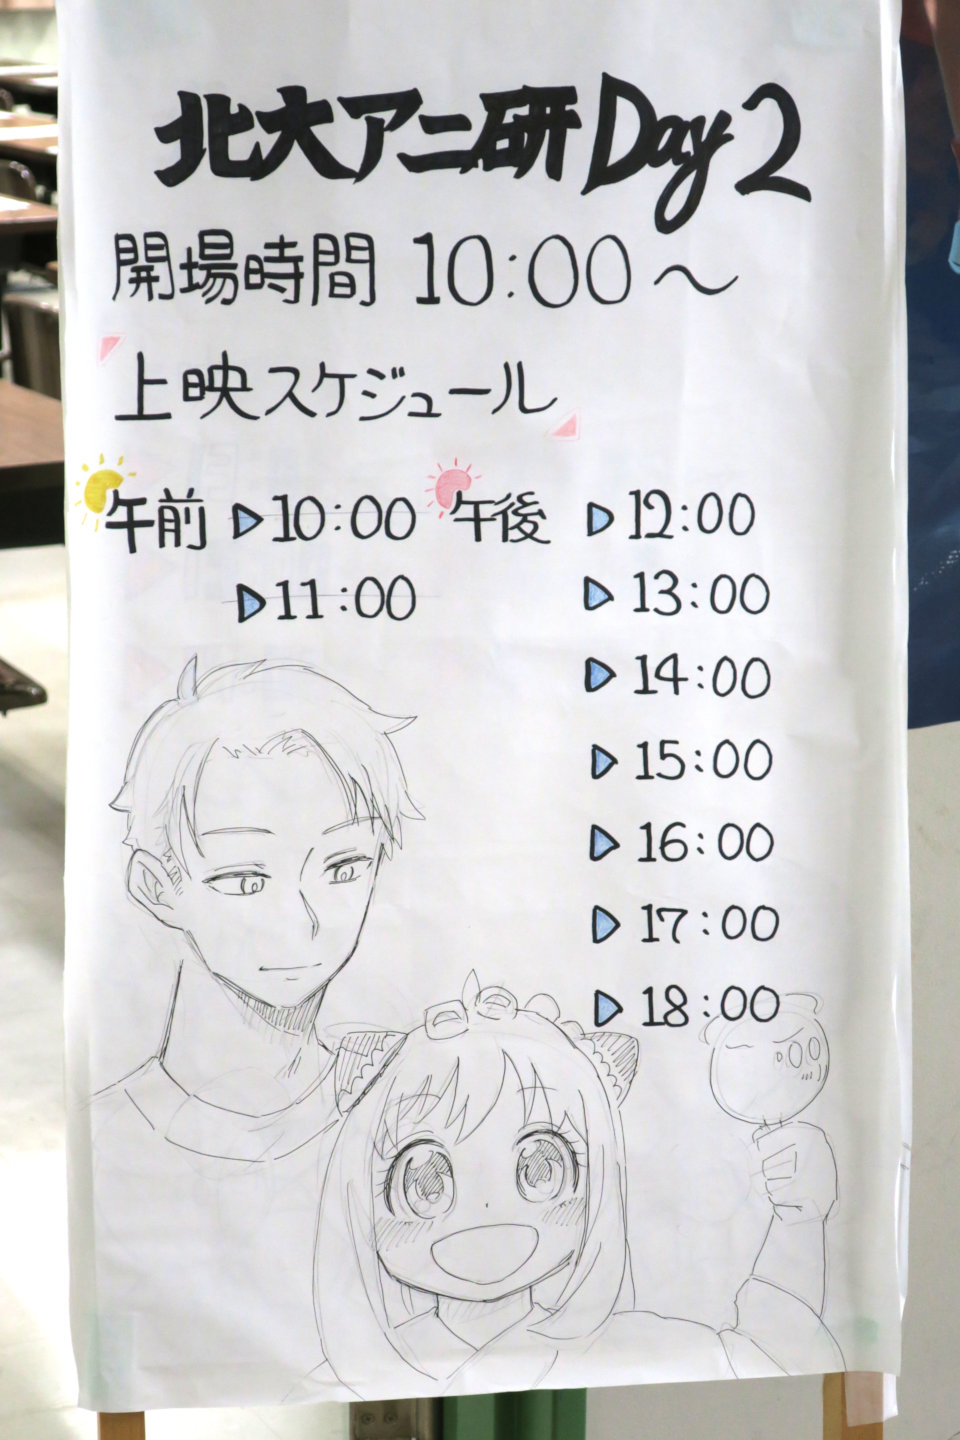 北大アニ研 Day 2
開場時間 10:00～
上映スケジュール
午前 ▷10:00 午後 ▷12:00
▷11:00 ▷13:00
▷14:00
▷15:00
▷16:00
▷17:00
▷18:00